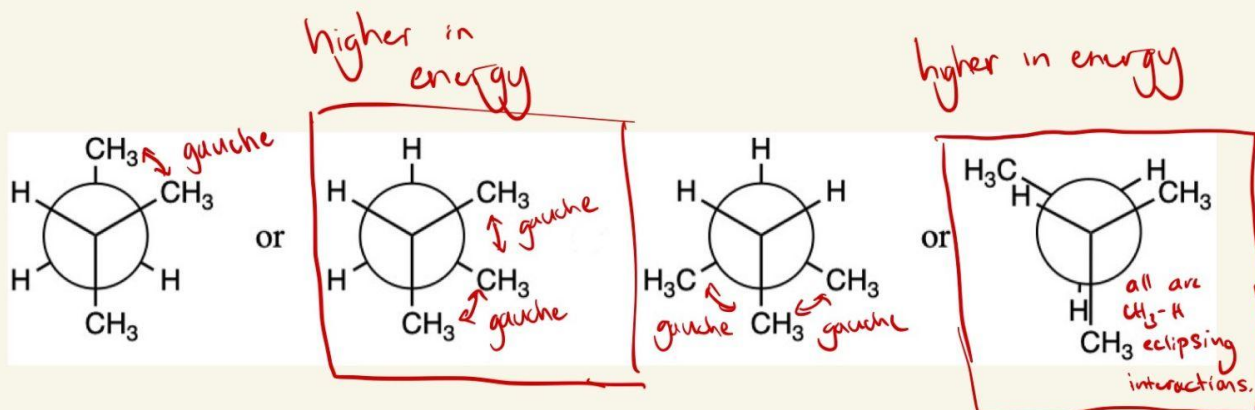 higher in
energy
higher in energy
CH₃
gauche
H
CH₃
H
H
CH₃
or
H
H
CH₃
gauche
H
CH₃
gauche
CH₃
H
H
H
H₃C
CH₃
gauche
CH₃
gauche
or
H₃C
H
H
CH₃
H
CH₃
all are
CH₃-H
eclipsing
interactions.